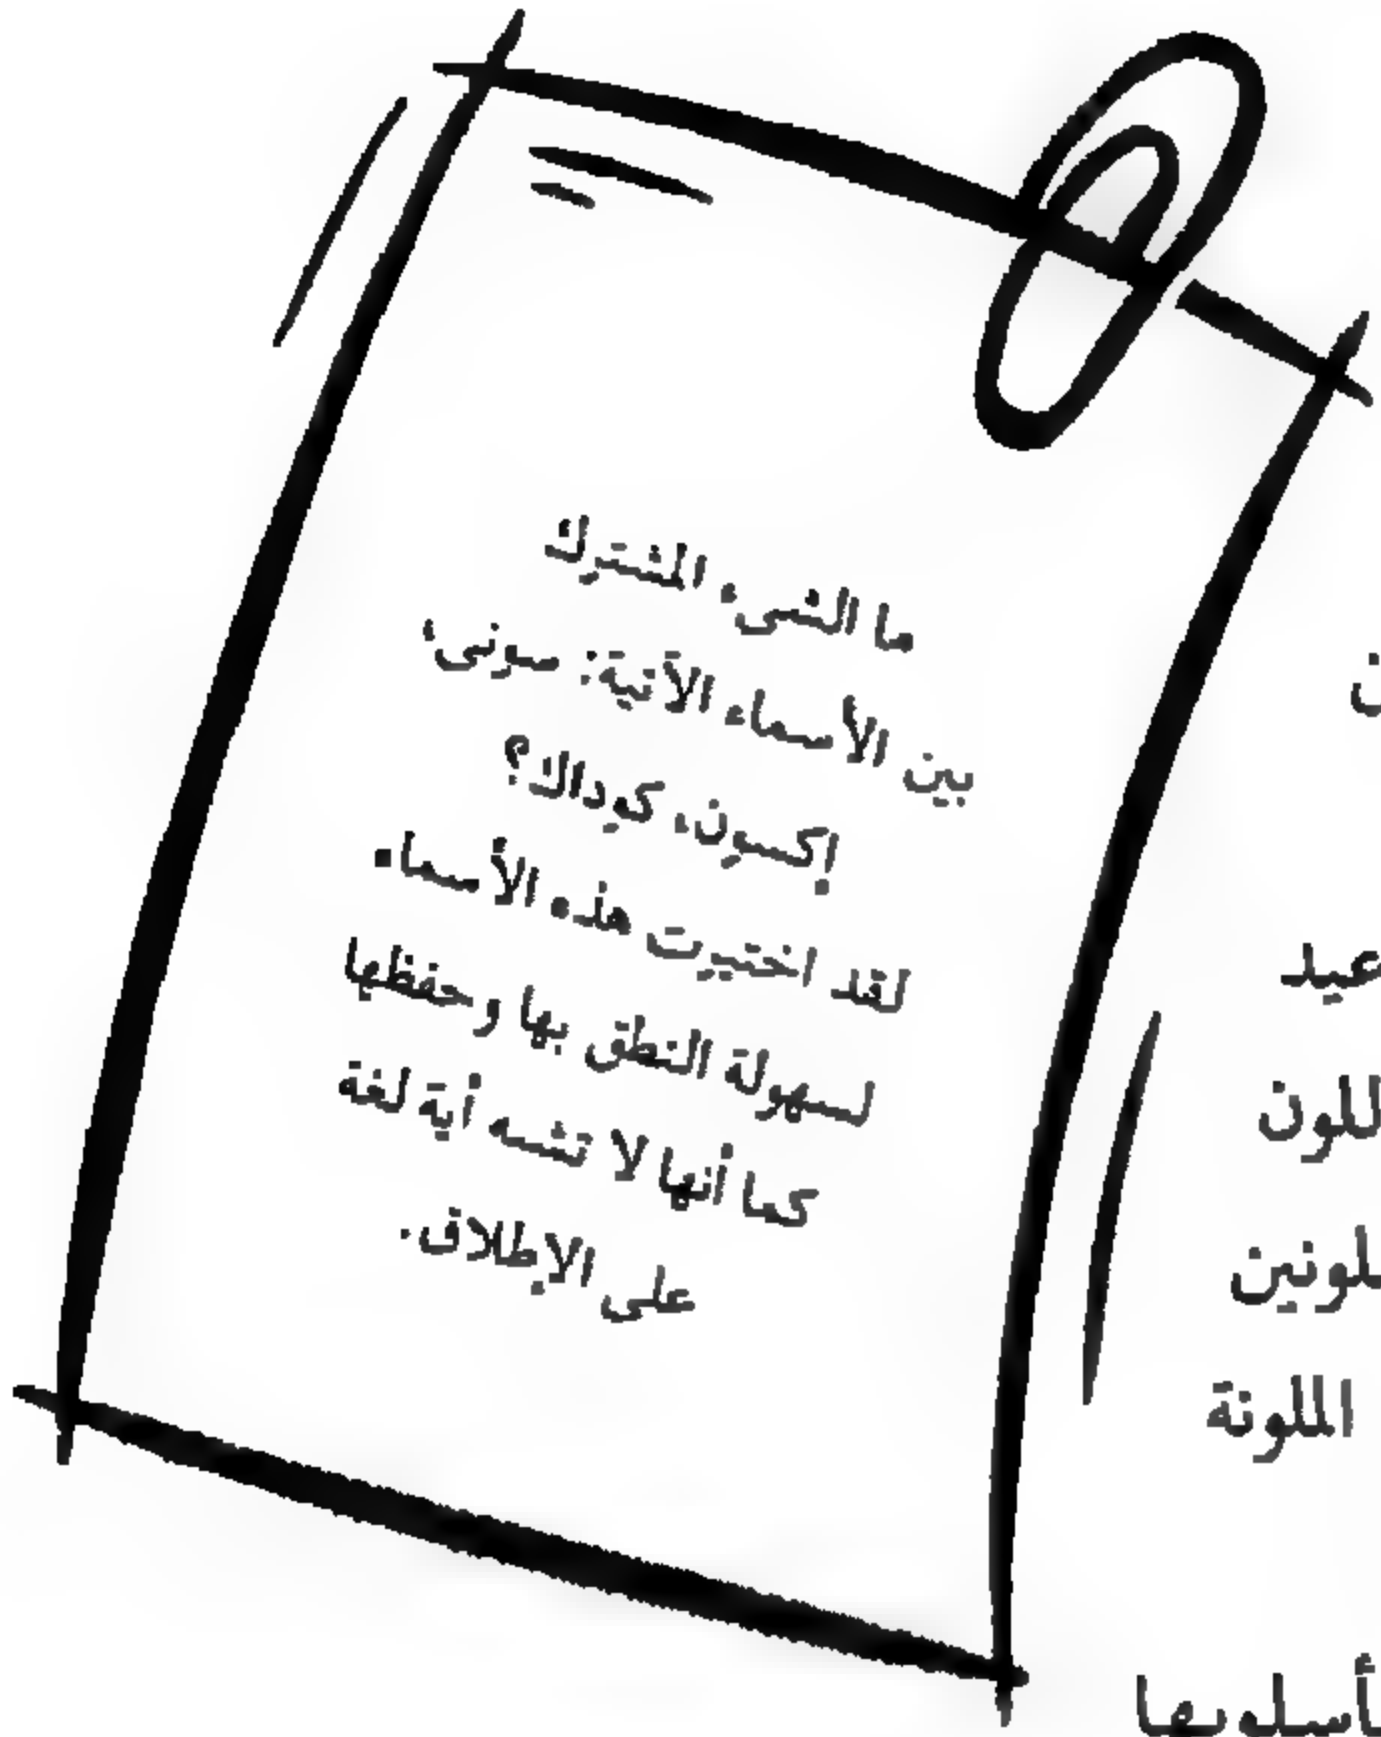 ما الشىء المشترك
بين الأسماء الآتية: سونى،
إكسون، كوداك؟
لقد اختيرت هذه الأسماء
لسهولة النطق بها وحفظها
كما أنها لا تشبه أية لغة
على الإطلاق.
ن
عيد
للون
لمونين
الملونة
بأسلوبها